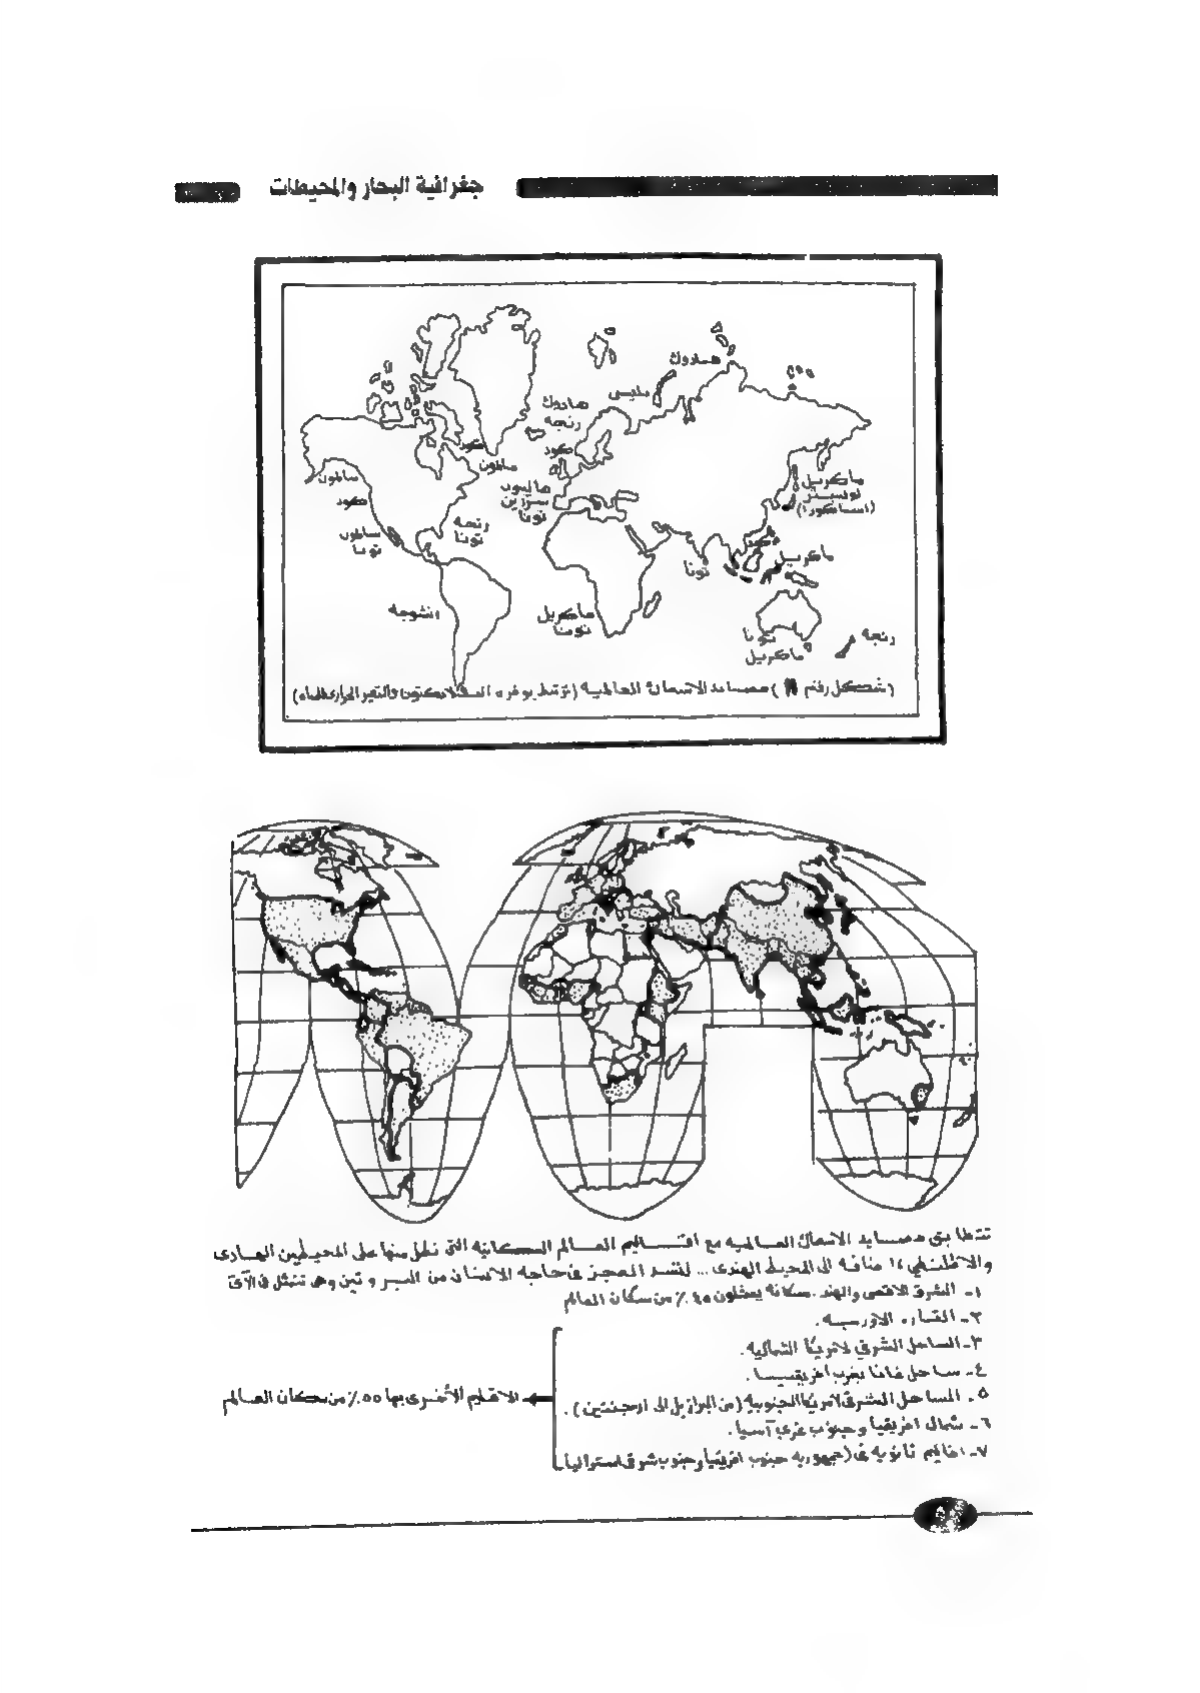 جغرافية البحار والمحيطات
هادوك
هادوك
رنجه
بلايس
كود
كود
سالمون
سالمون
كود
سالمون
تونا
رنجه
تونا
سردين
تونا
ماكريل
(اسماكورا)
ماكريل
تونا
انشوجه
ماكريل
تونا
تونا
ماكريل
رنجه
(شكل رقم ) مصايد الاسماك العالمية (ترتبط بوفره البلانكتون والتغير الحرارى للمياه)
تتطابق مصايد الاسماك العالميه مع اقاليم العالم السكانيه التى تطل منها على المحيطين الهادى
والاطلنطي اضافه الى المحيط الهندى ... لتسد العجز فى حاجه الانسان من البروتين وهى تتمثل فى الآتى
١- الشرق الاقصى والهند . سكانه يمثلون ٤٥ ٪ من سكان العالم
٢- القاره الاوربيه .
٣- الساحل الشرقي لامريكا الشماليه .
٤- ساحل غانا بغرب افريقيا .
٥- الساحل الشرقى لامريكا الجنوبيه (من البرازيل الى ارجنتين ) .
٦- شمال افريقيا وجنوب غربى آسيا .
٧- اقاليم ثانويه فى (جمهوريه جنوب افريقيا وجنوب شرق استراليا)
الاقليم الأخرى بها ٥٥٪ من سكان العالم